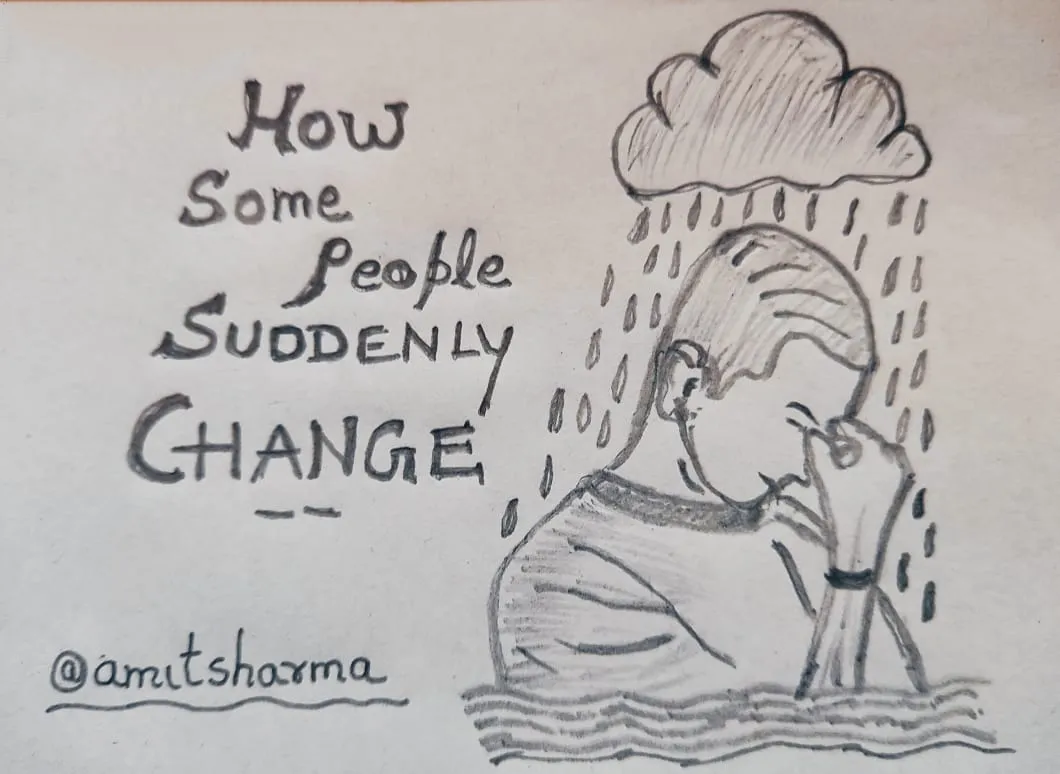 How
Some
People
SUDDENLY
CHANGE
@amitsharma